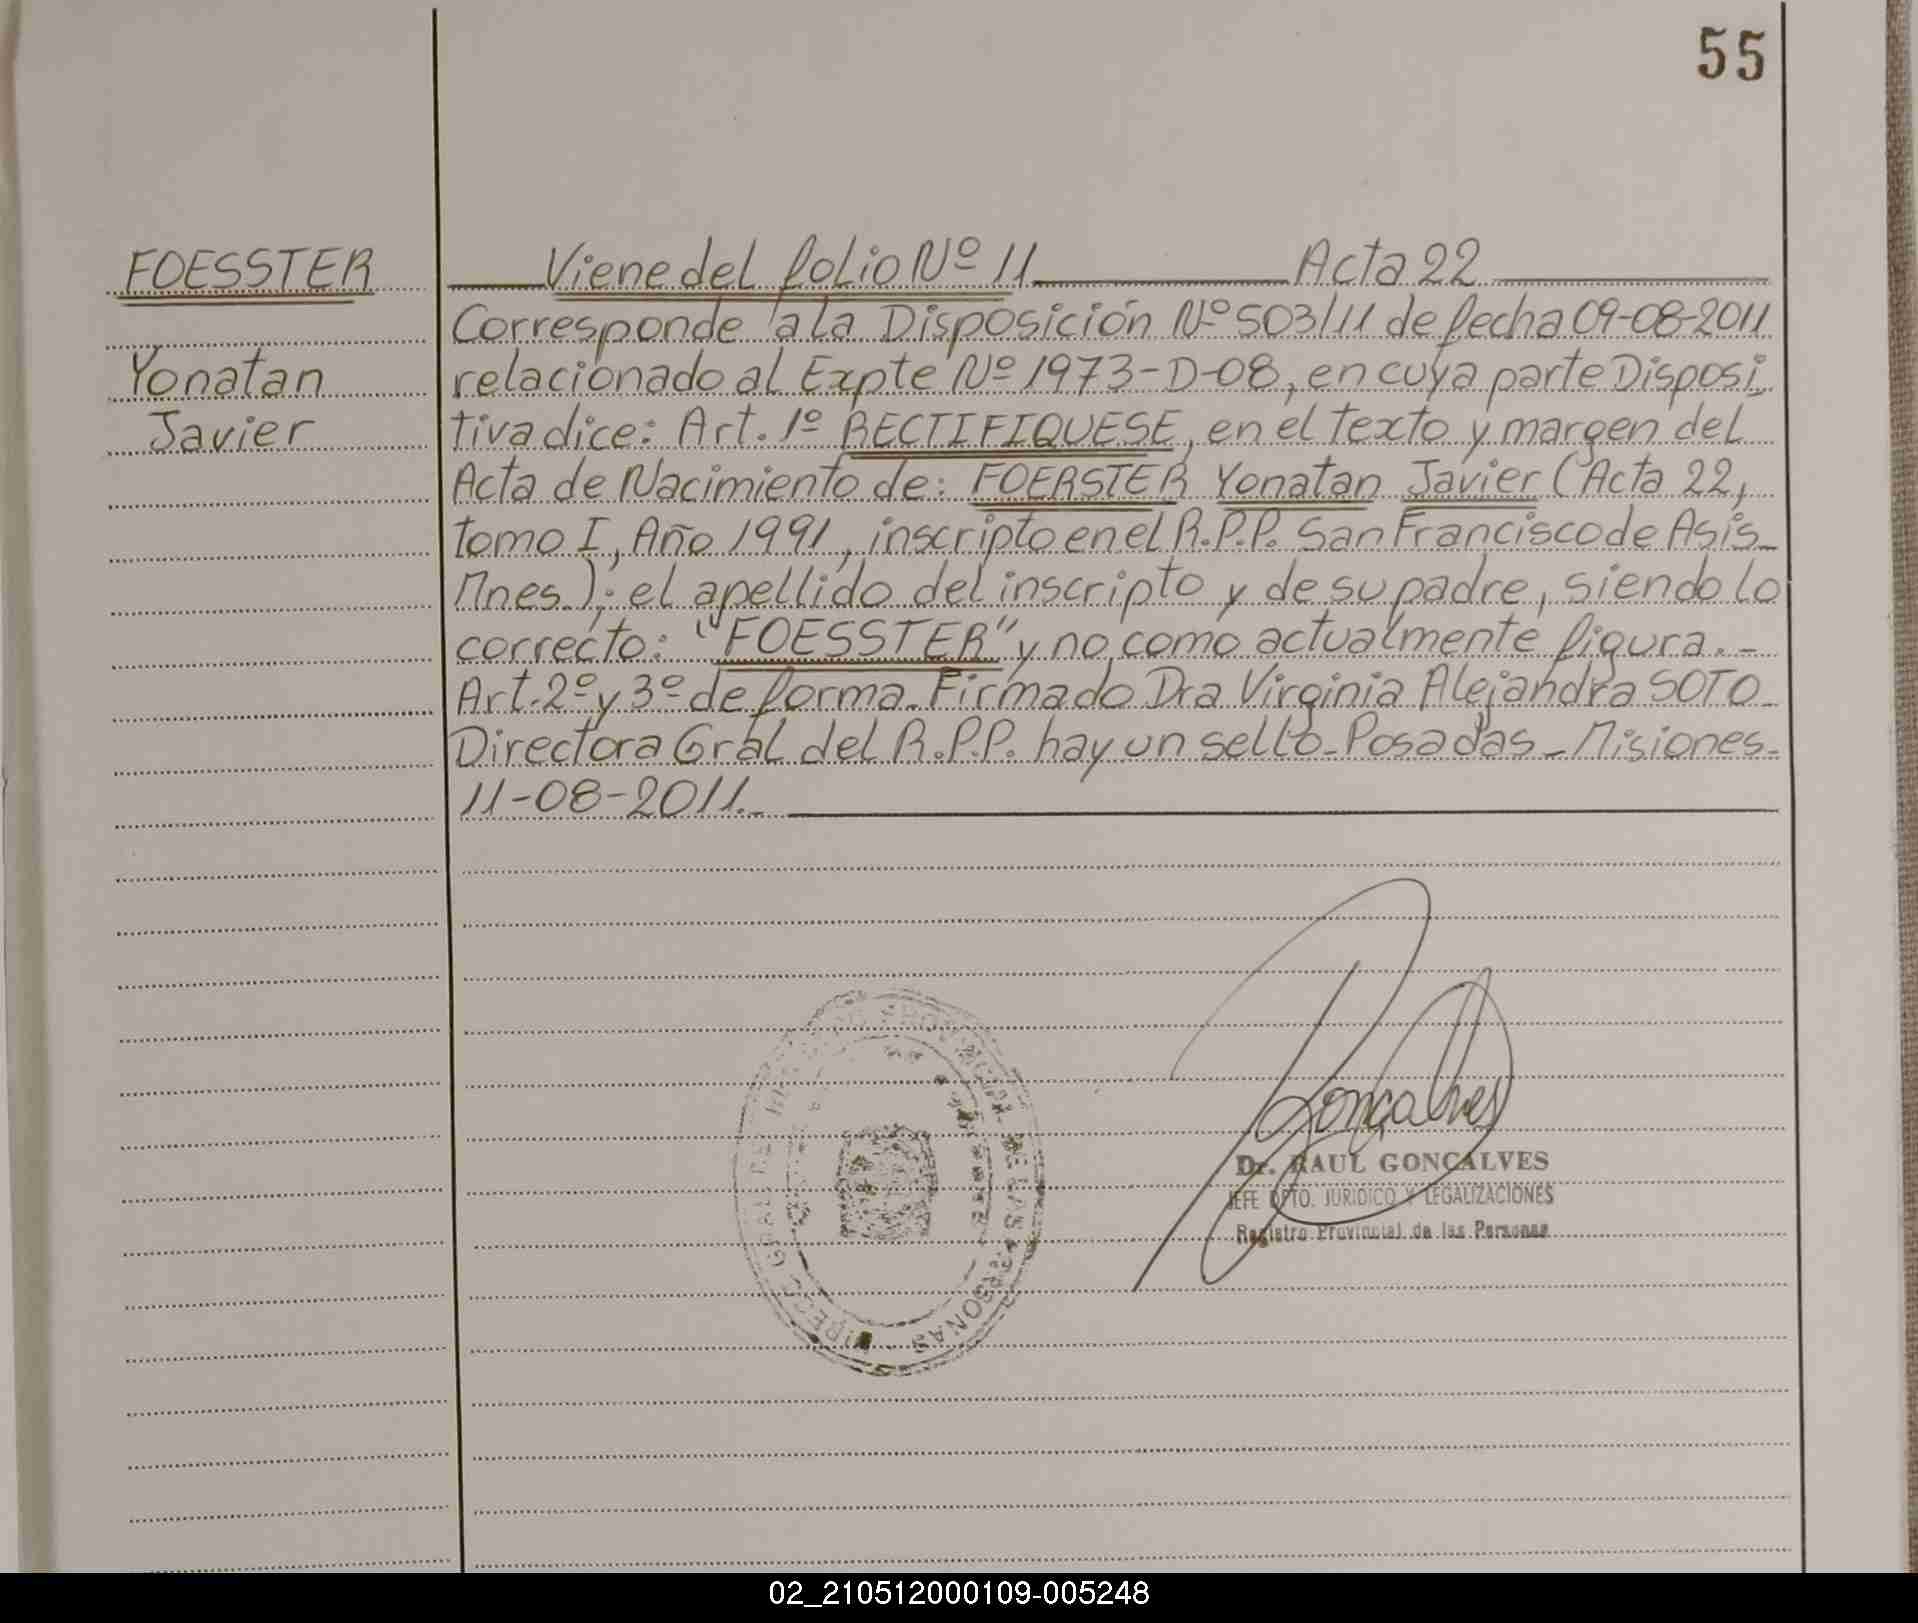 55
FOESSTER
Yonatan
Javier
Viene del folio Nº 11 Acta 22
Corresponde a la Disposición Nº 503/11 de fecha 09-08-2011
relacionado al Expte Nº 1973-D-08, en cuya parte Disposi
tiva dice: Art. 1º RECTIFIQUESE, en el texto y margen del
Acta de Nacimiento de: FOERSTER Yonatan Javier (Acta 22,
tomo I, Año 1991, inscripto en el R.P.P. San Francisco de Asis_
Mnes.); el apellido del inscripto y de su padre, siendo lo
correcto: "FOESSTER" y no como actualmente figura.-
Art. 2º y 3º de forma. Firmado Dra Virginia Alejandra SOTO_
Directora Gral del R.P.P. hay un sello_ Posadas_ Misiones_
11-08-2011._
Gonçalves
Dr. RAUL GONCALVES
JEFE DPTO. JURIDICO Y LEGALIZACIONES
Registro Provincial de las Personas
DE LAS PERSONAS
02_210512000109-005248